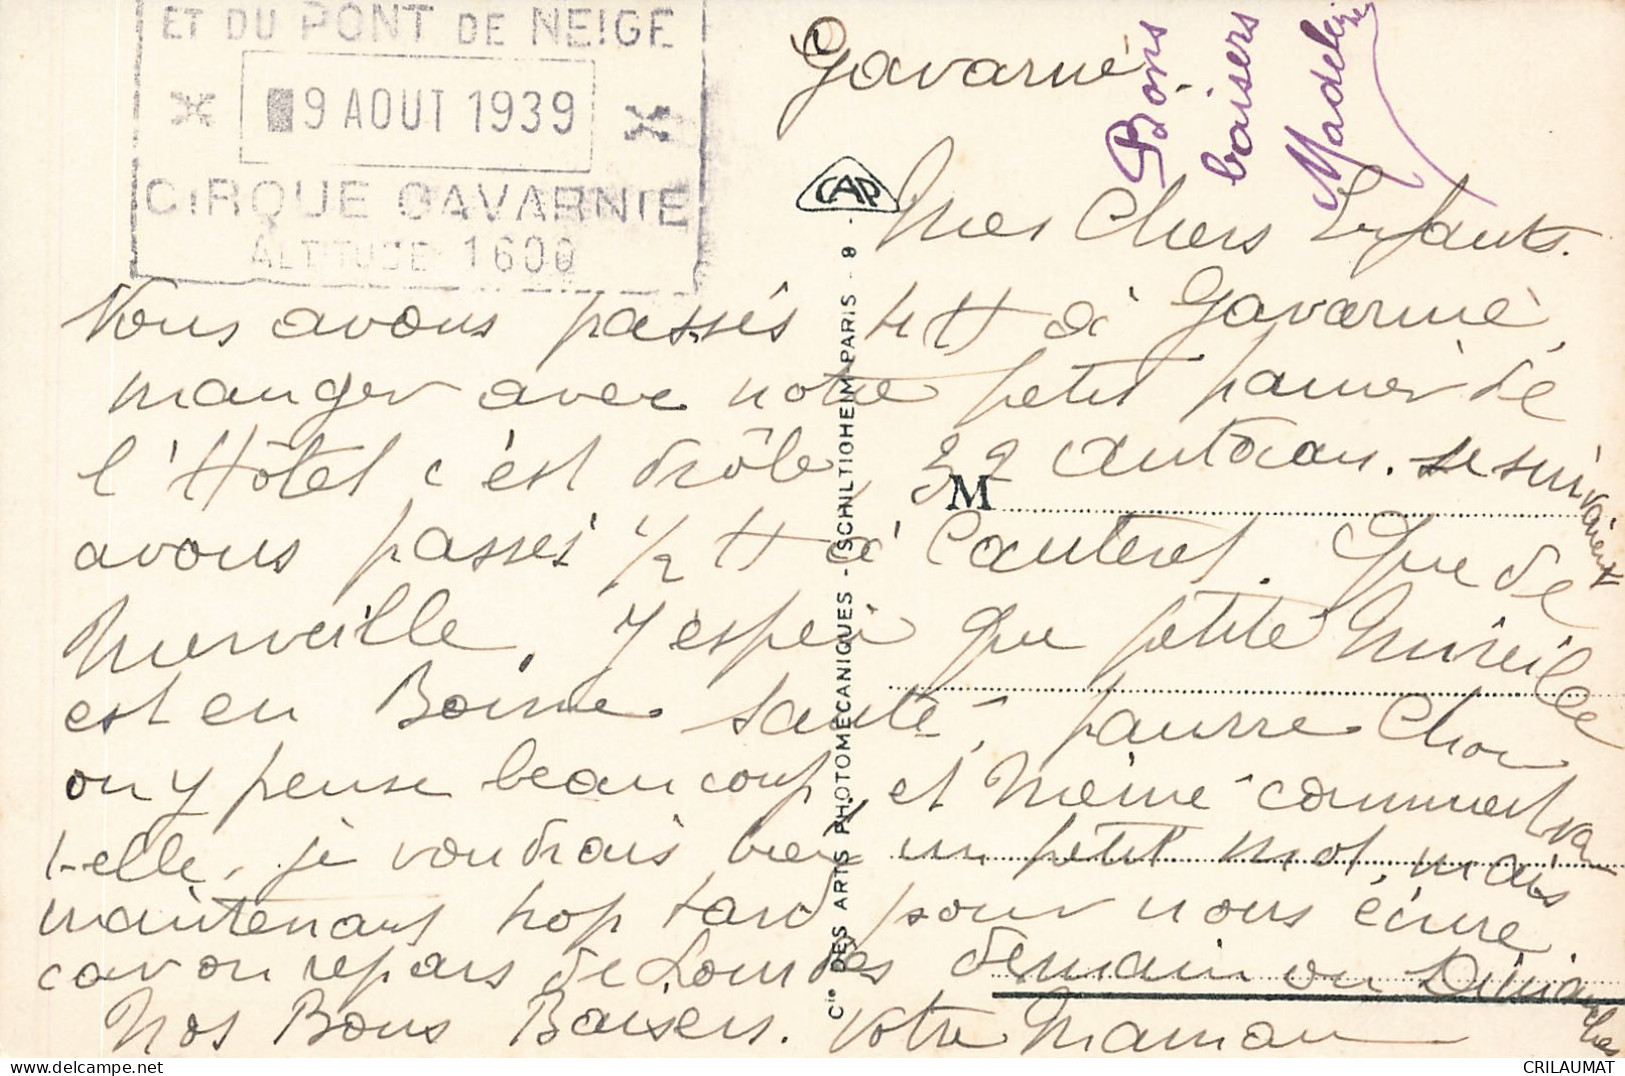 ET DU PONT DE NEIGE
9 AOUT 1939
CIRQUE GAVARNIE
ALTITUDE 1600
Gavarnie
Bons
baisers
Madeleine
CAP
Mes Chers Enfants.
Nous avons passés 4 H à Gavarnie
manger avec notre petit panier de
l'Hôtel c'est drôle, 32 autocar. se suivaient
avons passés 1/2 H à Cauteret. Que de
Merveille. J'espère que petite Mireille
est en Bonne santé, pauvre Chou
on y pense beaucoup, et même comment va
t-elle, je voudrais bien un petit mot, mais
maintenant trop tard pour nous écrire.
car on repars de Lourdes demain ou Dimanche
Nos Bons Baisers. Votre Maman
M
Cie DES ARTS PHOTOMECANIQUES - SCHILTIGHEIM-PARIS - 9 -
CRILAUMAT